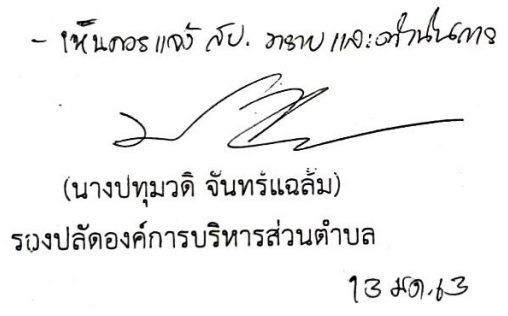 - เห็นควรแจ้ง สป. ทราบ และดำเนินการ
(นางปทุมวดี จันทร์แฉล้ม)
รองปลัดองค์การบริหารส่วนตำบล
13 มค. 63